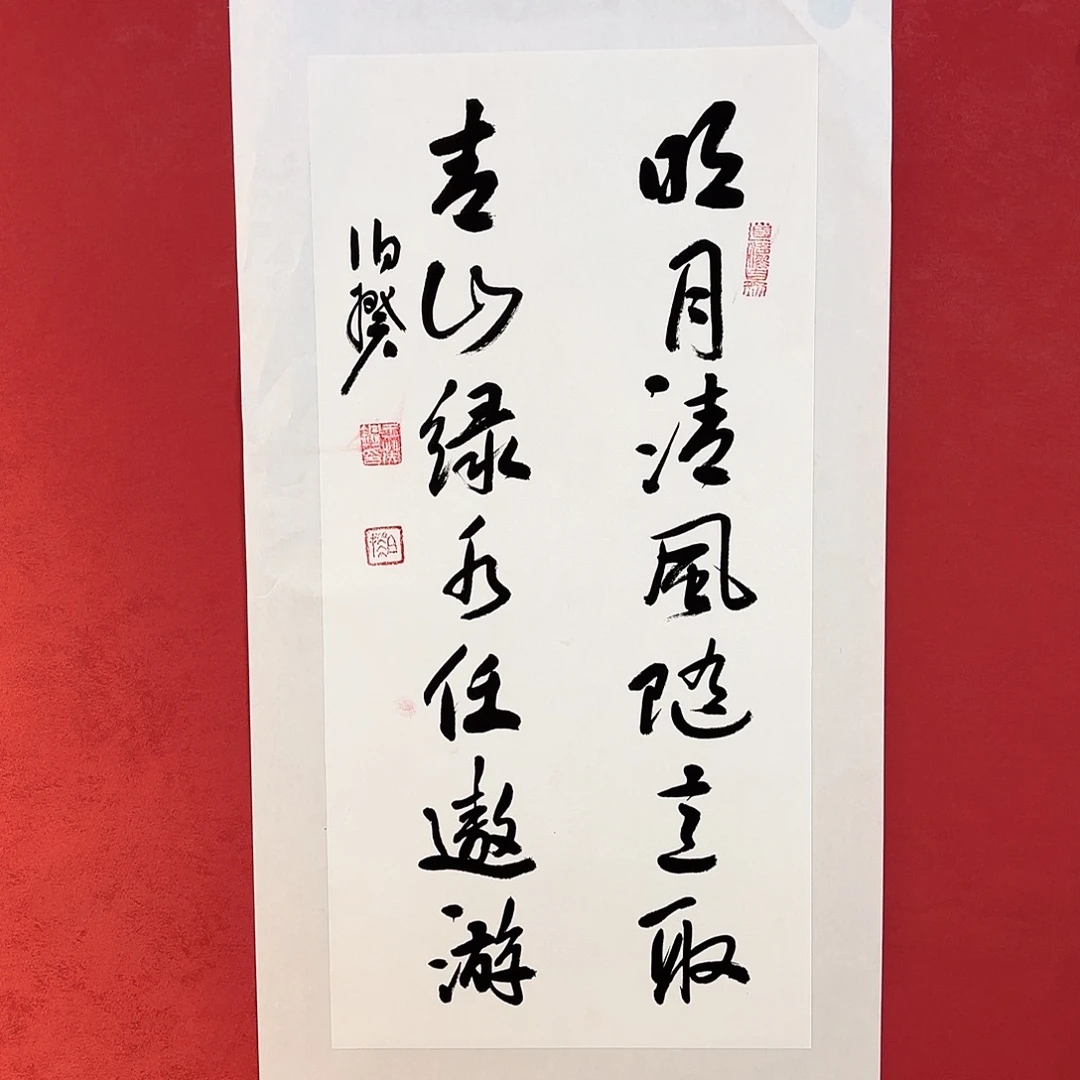 明月清風随意取
青山绿水任遨游
伯揆